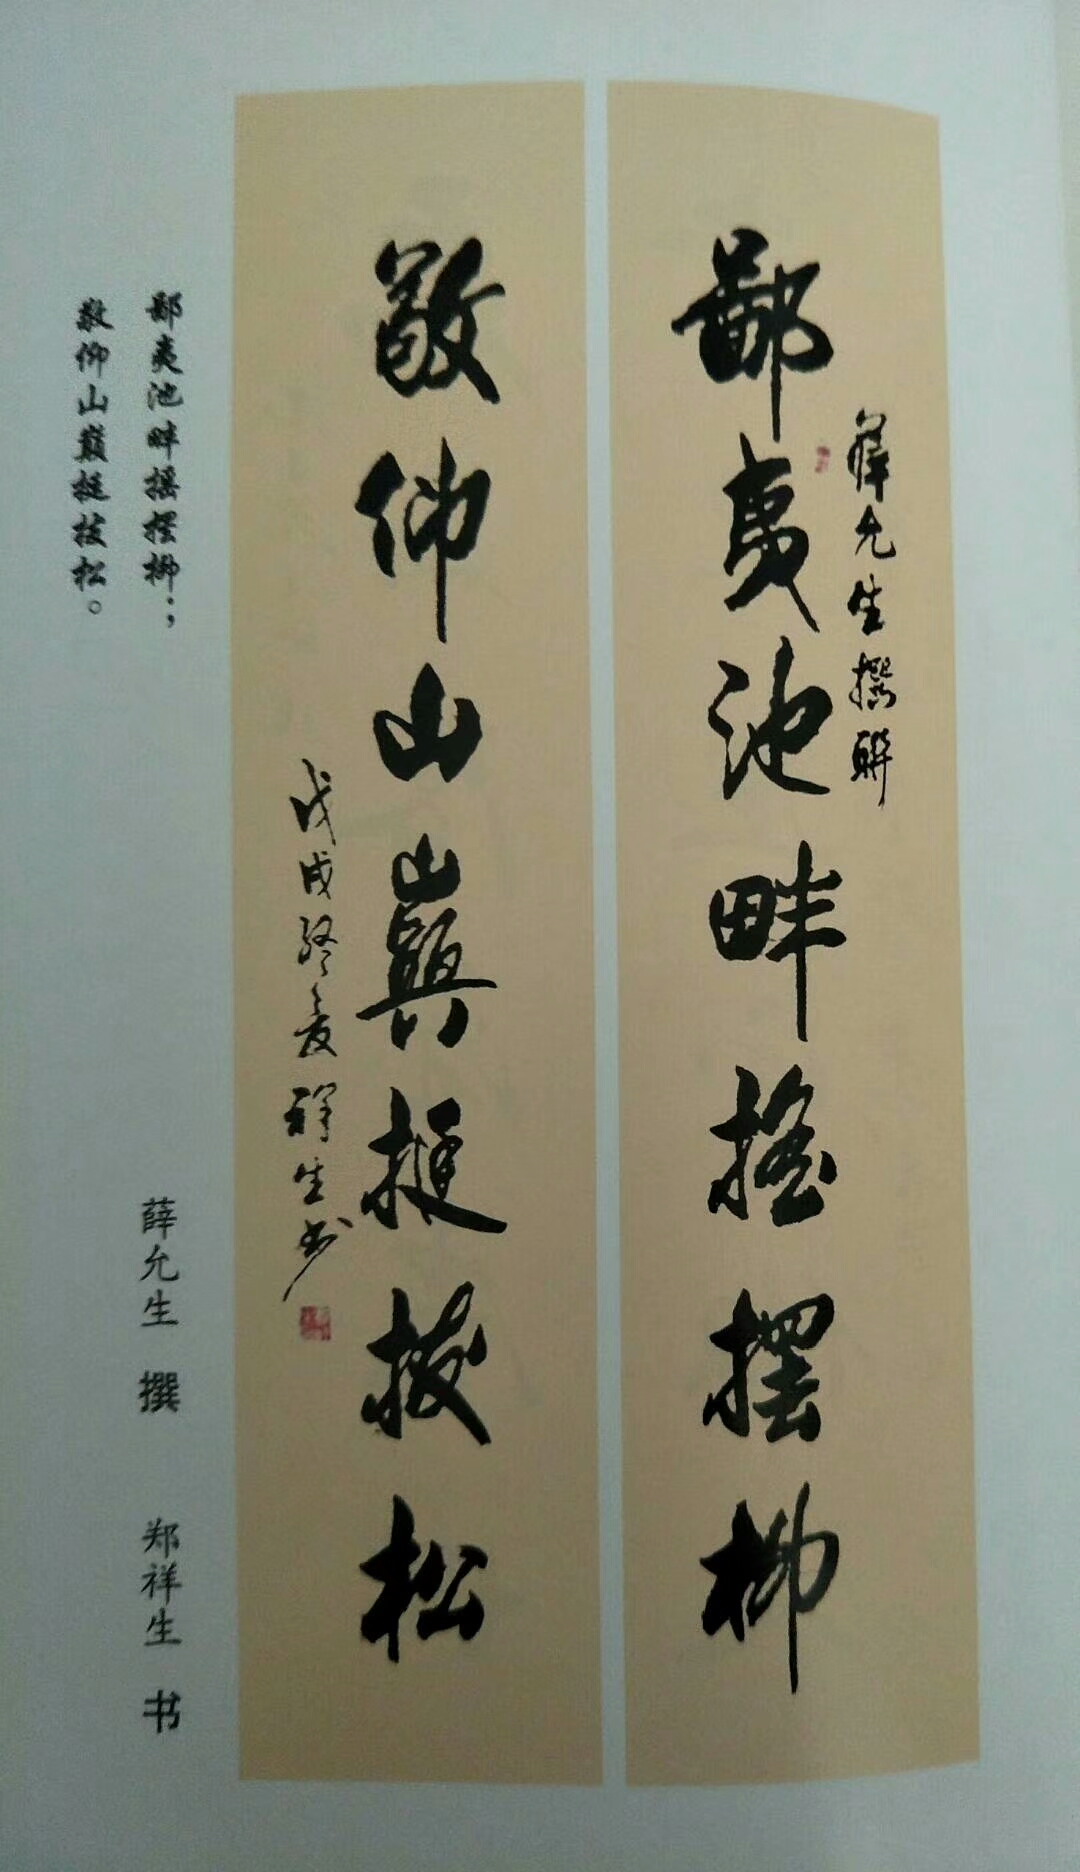 薛允生撰聯
鄙夷池畔搖擺柳
敬仰山巔挺拔松
戊戌終夏祥生书
鄙夷池畔摇摆柳；
敬仰山巅挺拔松。
薛允生 撰 郑祥生 书